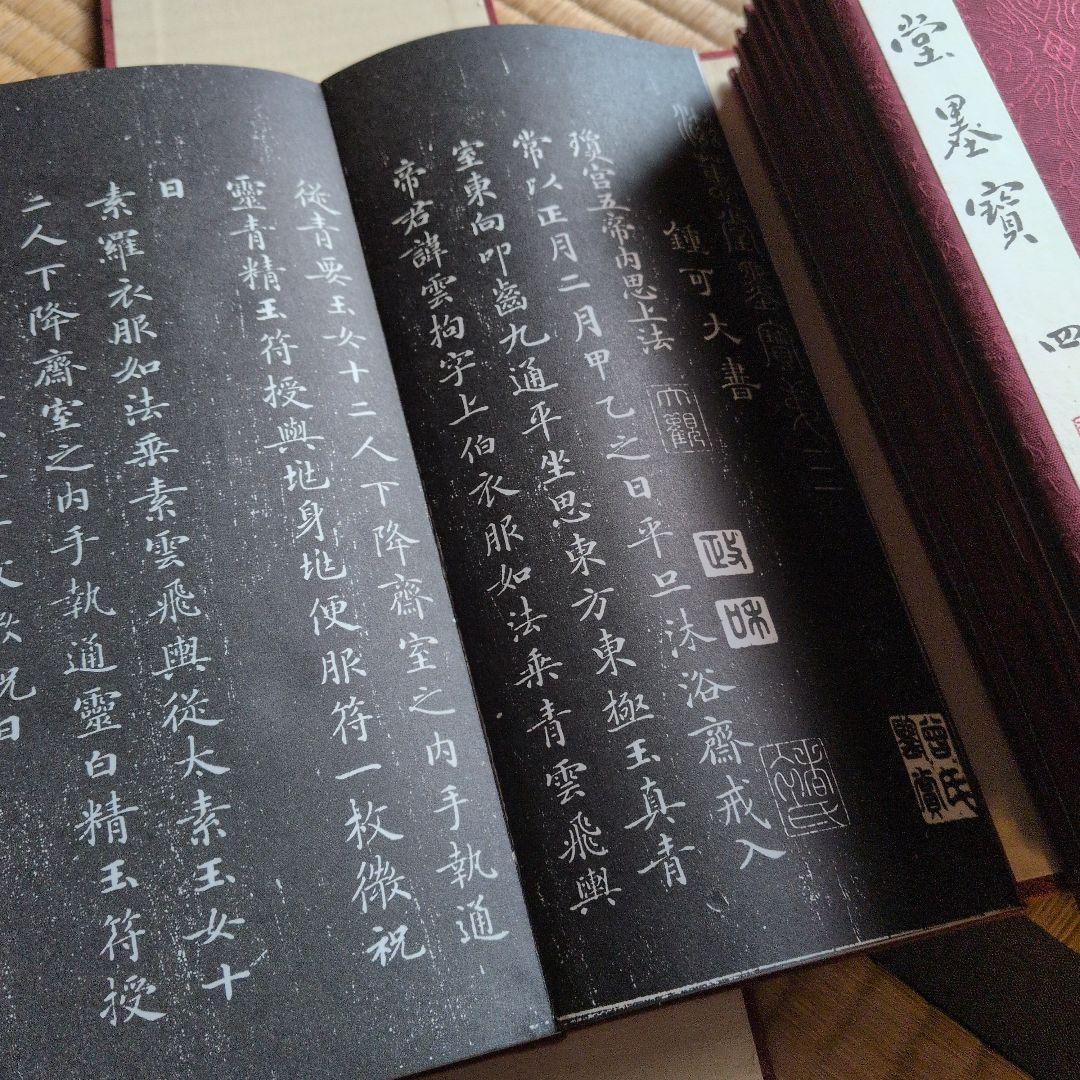 堂墨寶 四
鍾可大書
瓊宮五帝內思上法
大觀
政和
常以正月二月甲乙之日平旦沐浴齋戒入
室東向叩齒九通平坐思東方東極玉真青
帝君諱雲拘字上伯衣服如法乘青雲飛輿
從青要玉女十二人下降齋室之內手執通
靈青精玉符授與兆身兆便服符一枚微祝
曰
素羅衣服如法乘素雲飛輿從太素玉女十
二人下降齋室之內手執通靈白精玉符授
枚微祝曰